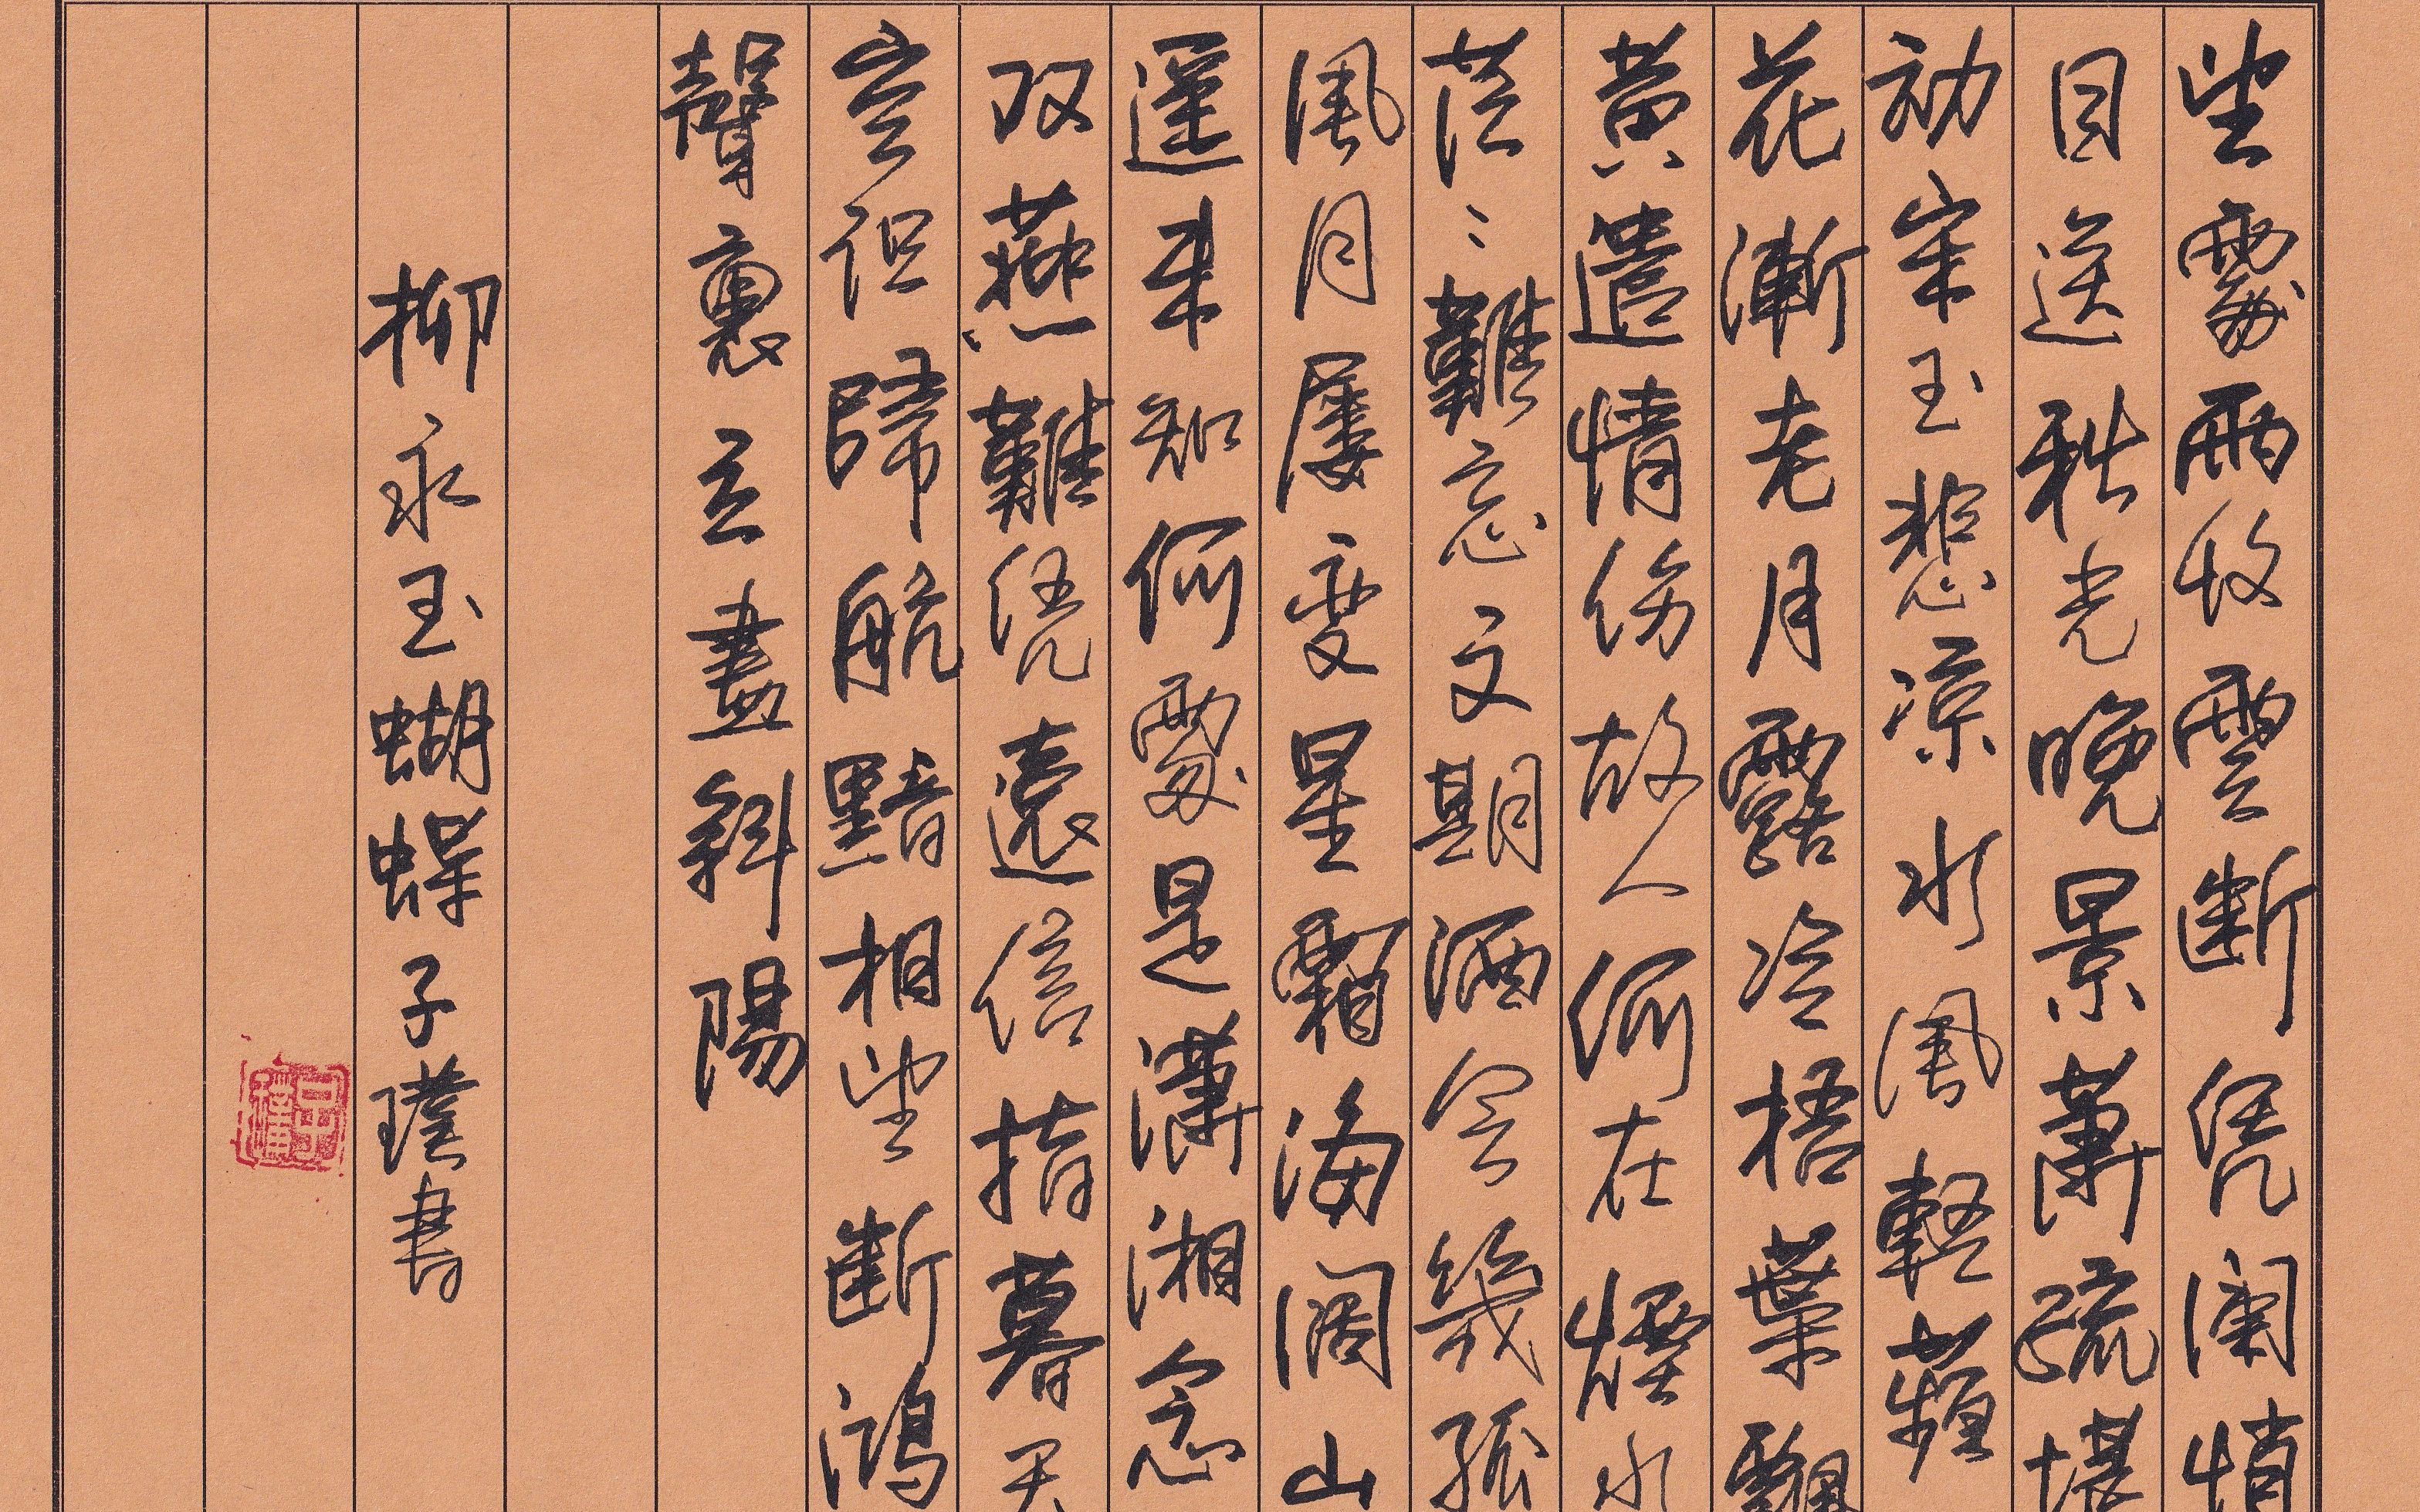 望處雨收雲断凭阑悄
目送秋光晚景蕭疏堪
動宋玉悲凉水風輕蘋
花漸老月露冷梧葉飄
黃遣情傷故人何在煙水
茫〻難忘文期酒會幾孤
風月屢變星霜海阔山
遥未知何處是瀟湘念
双燕難凭遠信指暮天
空识歸航黯相望断鴻
聲裏立盡斜陽
柳永玉蝴蝶子璞書